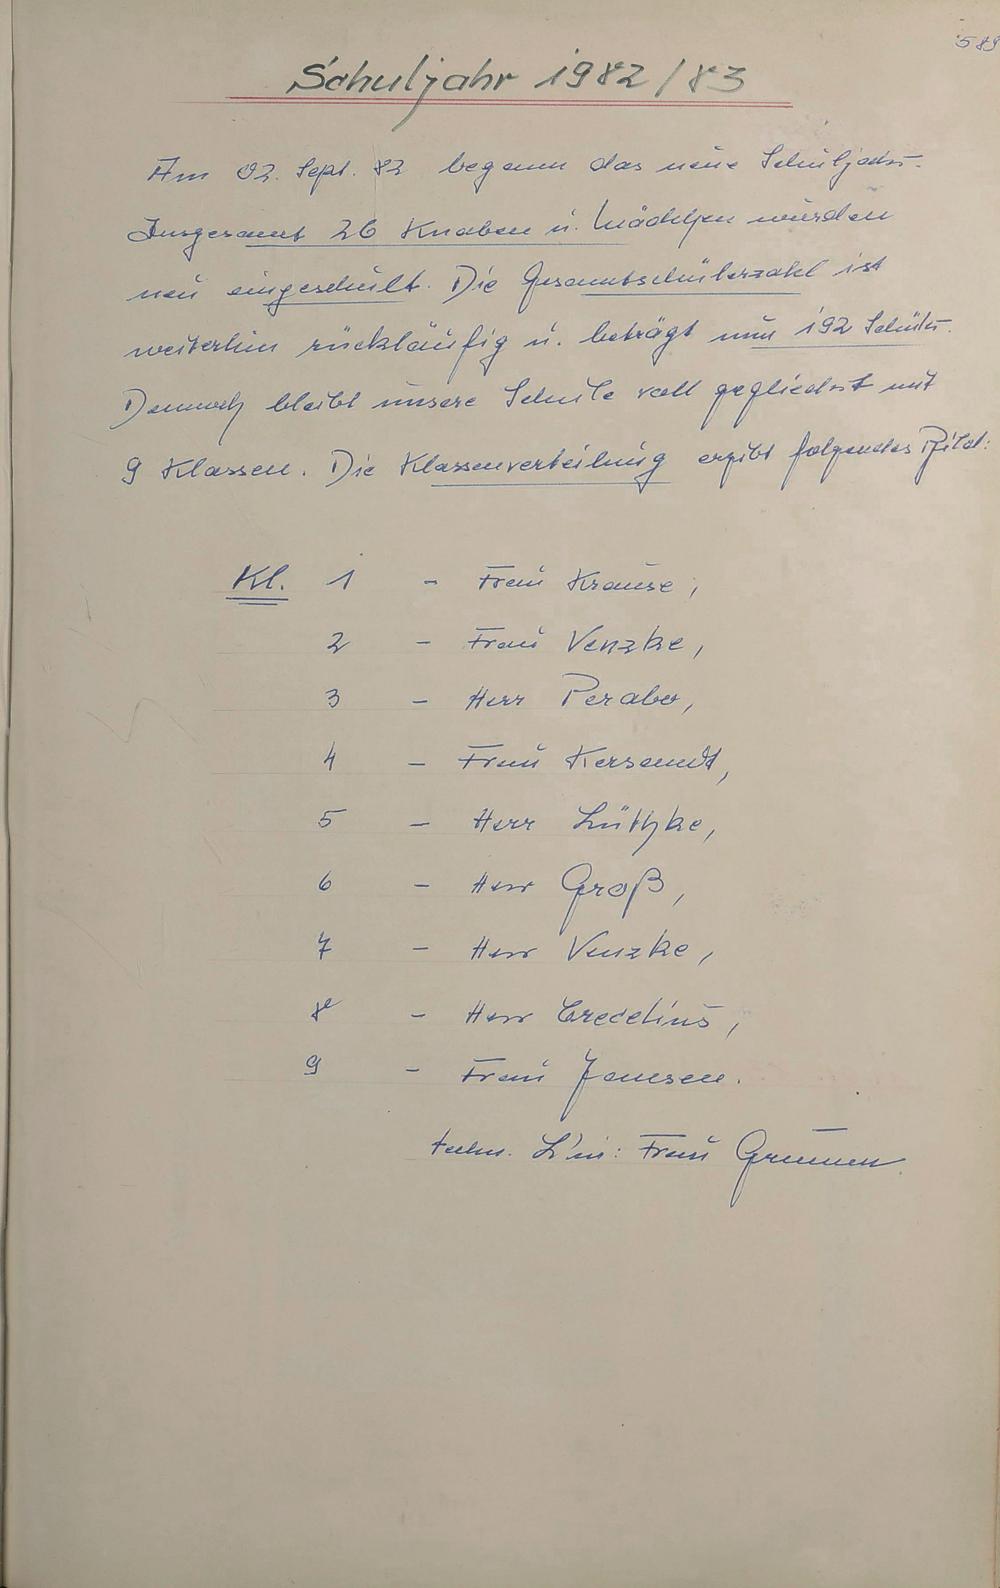 589
Schuljahr 1982/83
Am 02. Sept. 82 begann das neue Schuljahr.
Insgesamt 26 Knaben u. Mädchen wurden
neu eingeschult. Die Gesamtschülerzahl ist
weiterhin rückläufig u. beträgt nun 192 Schüler.
Dennoch bleibt unsere Schule voll gegliedert mit
9 Klassen. Die Klassenverteilung ergibt folgendes Bild:
Kl. 1 - Frau Krause,
2 - Frau Venzke,
3 - Herr Perabo,
4 - Frau Kersandt,
5 - Herr Lüthke,
6 - Herr Groß,
7 - Herr Venzke,
8 - Herr Credelius,
9 - Frau Janssen.
techn. L'in: Frau